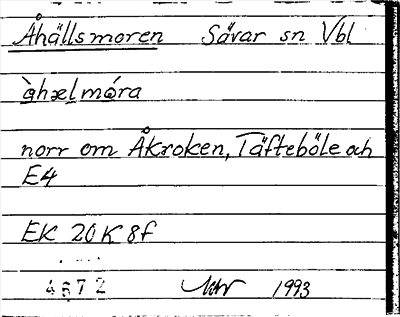 Åhällsmoren Sävar sn Vbl
àhælmóra
norr om Åkroken, Täfteböle och
E4
EK 20K 8f
4672 1993